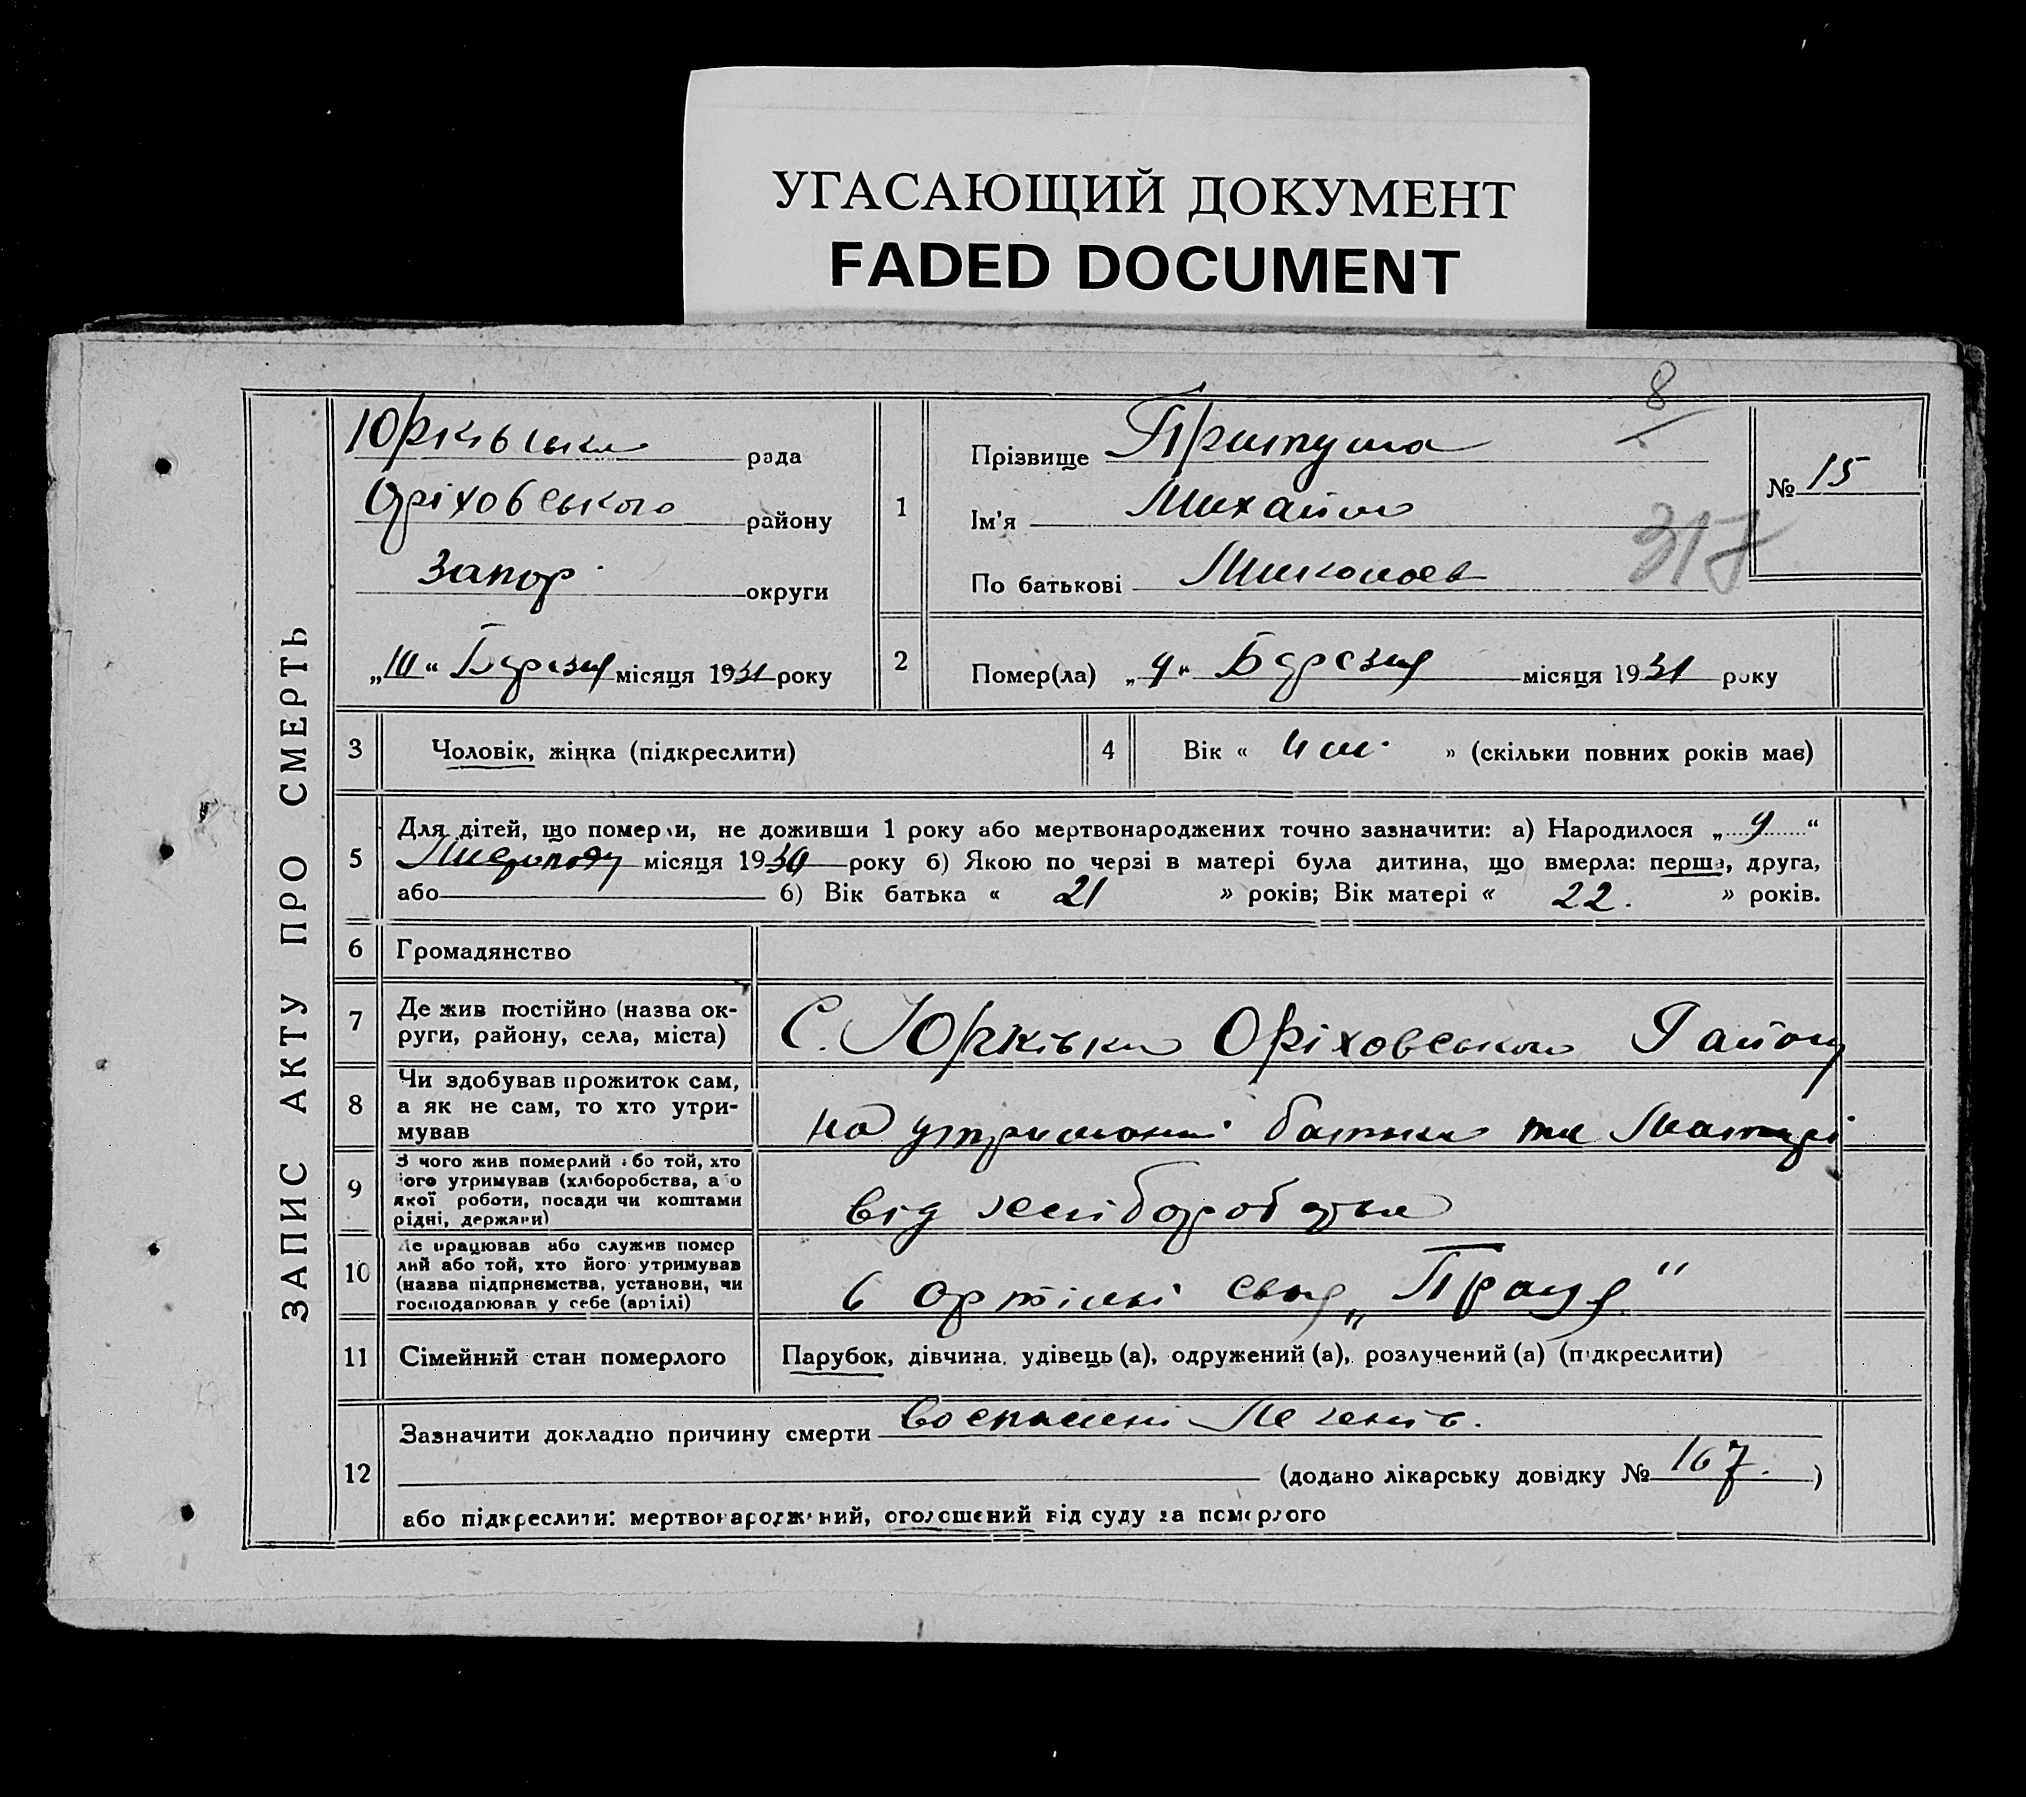 УГАСАЮЩИЙ ДОКУМЕНТ
FADED DOCUMENT
ЗАПИС АКТУ ПРО СМЕРТЬ
Юрківська рада
Оріховського району
Запор. округи
„10“ Березня місяця 1931 року
8
1
Прізвище Притула
Ім'я Михайло
По батькові Миколаєв
№ 15
317
2
Помер(ла) „9“ Березня місяця 1931 року
3 Чоловік, жінка (підкреслити)
4 Вік « 4 м. » (скільки повних років має)
5 Для дітей, що померли, не доживши 1 року або мертвонароджених точно зазначити: а) Народилося „ 9 “
Листопаду місяця 1930 року б) Якою по черзі в матері була дитина, що вмерла: перша, друга,
або б) Вік батька « 21 » років; Вік матері « 22. » років.
6 Громадянство
7 Де жив постійно (назва ок-
руги, району, села, міста)
С. Юрківка Оріховського Району
8 Чи здобував прожиток сам,
а як не сам, то хто утри-
мував
на утриманні батька та Матері
9 З чого жив померлий або той, хто
його утримував (хліборобства, або
якої роботи, посади чи коштами
рідні, держави)
від хліборобства
10 Де працював або служив помер
лий або той, хто його утримував
(назва підприємства, установи, чи
господарював у себе (артілі)
в артілі „Праця“
11 Сімейний стан померлого
Парубок, дівчина, удівець (а), одружений (а), розлучений (а) (підкреслити)
12 Зазначити докладно причину смерти воспалені Легенів.
(додано лікарську довідку № 167. )
або підкреслити: мертвонароджений, оголошений від суду за померлого